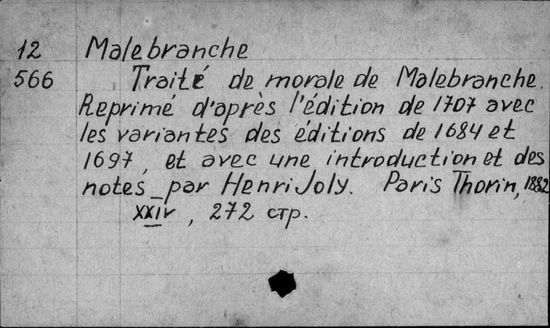 12 Malebranche
566 Traité de morale de Malebranche.
Reprimé d'après l'édition de 1707 avec
les variantes des éditions de 1684 et
1697, et avec une introduction et des
notes par Henri Joly. Paris Thorin, 1882
XXIV, 272 стр.